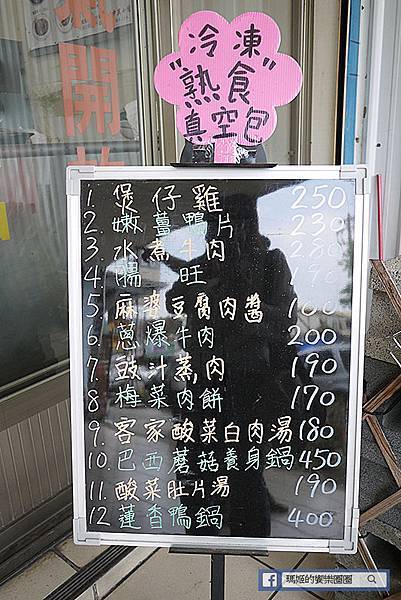 冷凍
"熟食"
真空包
開
1. 煲仔雞 250
2. 嫩薑鴨片 230
3. 水煮牛肉 280
4. 腸旺 190
5. 麻婆豆腐肉醬 100
6. 蔥爆牛肉 200
7. 豉汁蒸肉 190
8 梅菜肉餅 170
9. 客家酸菜白肉湯 180
10. 巴西蘑菇養身鍋 450
11. 酸菜肚片湯 190
12 蓮香鴨鍋 400
瑪姬的寰樂圈圈